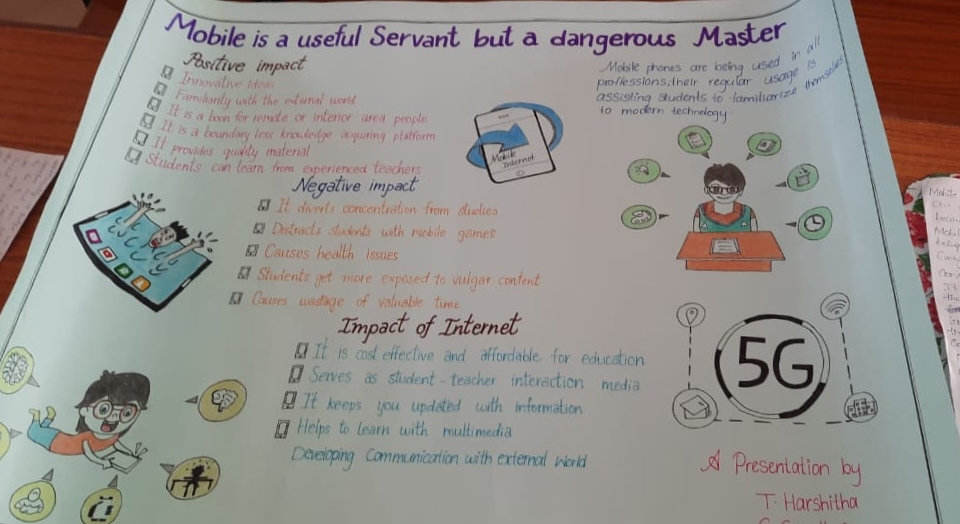 Mobile is a useful Servant but a dangerous Master
Positive impact
Innovative Ideas
Familiarity with the external world
It is a boon for remote or interior area people
It is a boundary less knowledge acquiring platform
It provides quality material
Students can learn from experienced teachers
Mobile phones are being used in all
proffessions, their regular usage is
assisting students to familiarize themselves
to modern technology.
Mobile
Internet
Negative impact
It diverts concentration from studies
Distracts students with mobile games
Causes health issues
Students get more exposed to vulgar content
Causes wastage of valuable time.
Impact of Internet
It is cost effective and affordable for education
Serves as student-teacher interaction media
It keeps you updated with information
Helps to learn with multimedia
Developing Communication with external World
5G
A Presentation by
T. Harshitha